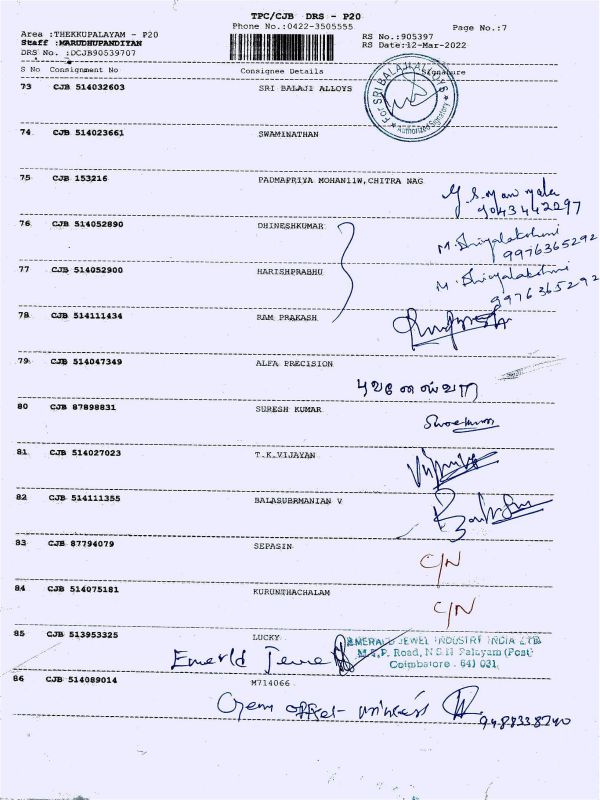 TPC/CJB DRS - P20
Phone No.:0422-3505555
Page No.:7
Area :THEKKUPALAYAM - P20
Staff :MARUDHUPANDIYAN
DRS No. :DCJB90539707
RS No.:905397
RS Date:12-Mar-2022
S No Consignment No Consignee Details Signature
73 CJB 514032603 SRI BALAJI ALLOYS
FOR SRI BALAJI ALLOYS
Authorized Signatory
74 CJB 514023661 SWAMINATHAN
75 CJB 153216 PADMAPRIYA MOHAN11W,CHITRA NAG
9043442297
76 CJB 514052890 DHINESHKUMAR
9976365292
77 CJB 514052900 HARISHPRABHU
9976365292
78 CJB 514111434 RAM PRAKASH
79 CJB 514047349 ALFA PRECISION
புவனேஸ்வரி
80 CJB 87898831 SURESH KUMAR
81 CJB 514027023 T.K.VIJAYAN
82 CJB 514111355 BALASUBRMANIAN V
83 CJB 87794079 SEPASIN
C/N
84 CJB 514075181 KURUNTHACHALAM
C/N
85 CJB 513953325 LUCKY
EMERALD JEWEL INDUSTRY INDIA LTD
M.T.P. Road, N S N Palayam (Post)
Coimbatore - 641 031.
Emerld Jewe
86 CJB 514089014 M714066
Gem offset